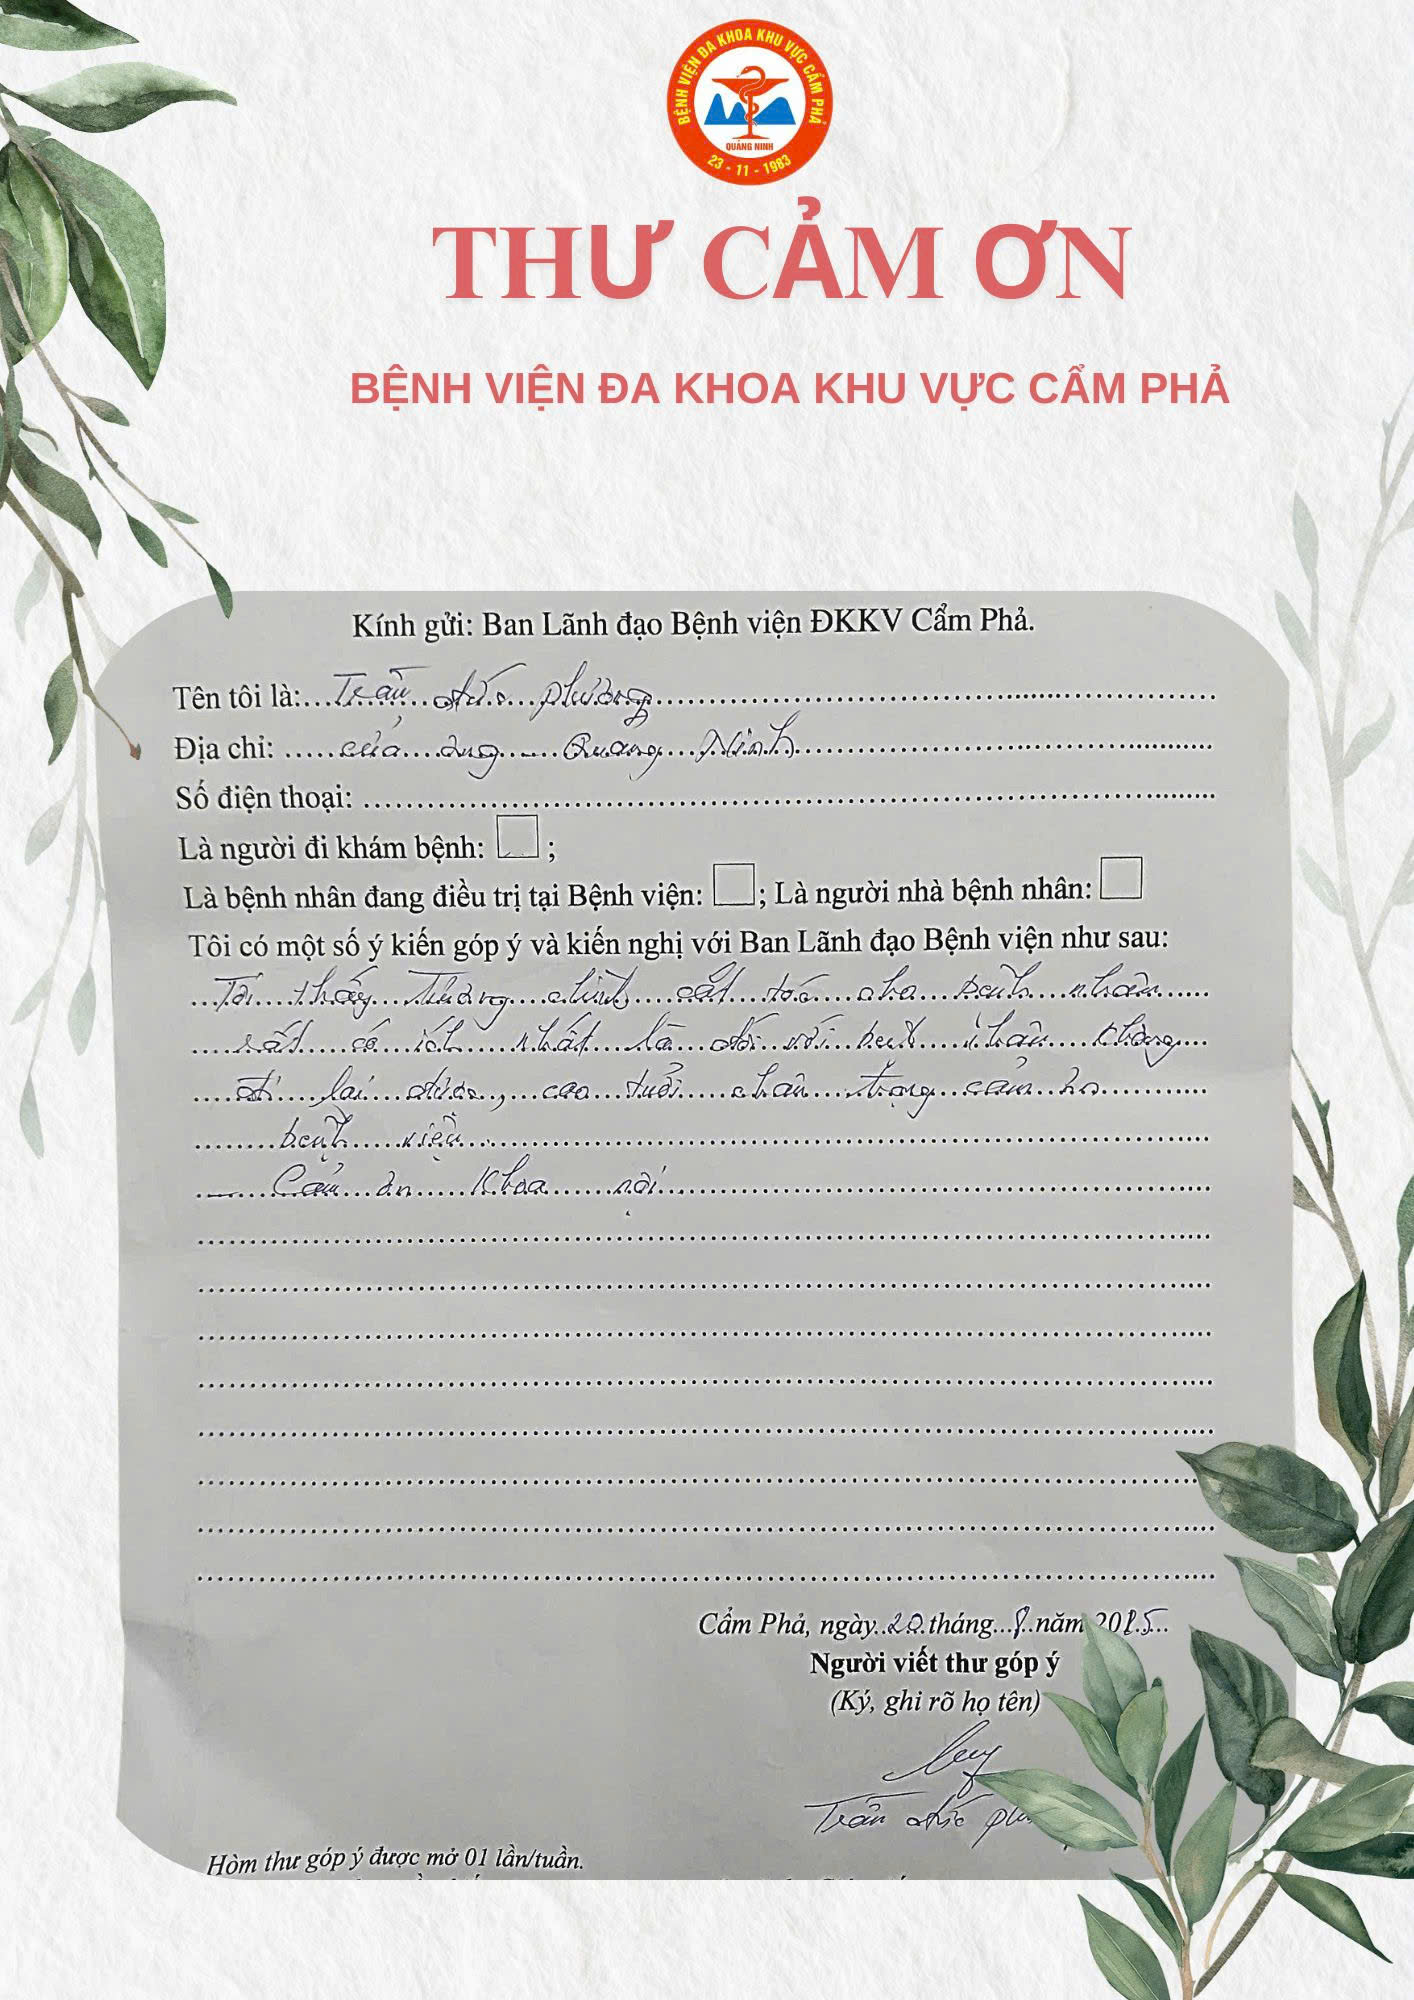 BỆNH VIỆN ĐA KHOA KHU VỰC CẨM PHẢ
QUẢNG NINH
23 - 11 - 1983
THƯ CẢM ƠN
BỆNH VIỆN ĐA KHOA KHU VỰC CẨM PHẢ
Kính gửi: Ban Lãnh đạo Bệnh viện ĐKKV Cẩm Phả.
Tên tôi là: Trần đức phương
Địa chỉ: cửa ông - Quảng Ninh
Số điện thoại:
Là người đi khám bệnh: ;
Là bệnh nhân đang điều trị tại Bệnh viện: ; Là người nhà bệnh nhân:
Tôi có một số ý kiến góp ý và kiến nghị với Ban Lãnh đạo Bệnh viện như sau:
Tôi thấy chương trình cắt tóc cho bệnh nhân
rất có ích nhất là đối với bệnh nhân không
đi lại được, cao tuổi chân trọng cảm ơn
bệnh viện
- Cảm ơn khoa nội
Cẩm Phả, ngày 20 tháng 8 năm 2025
Người viết thư góp ý
(Ký, ghi rõ họ tên)
Trần đức
Hòm thư góp ý được mở 01 lần/tuần.